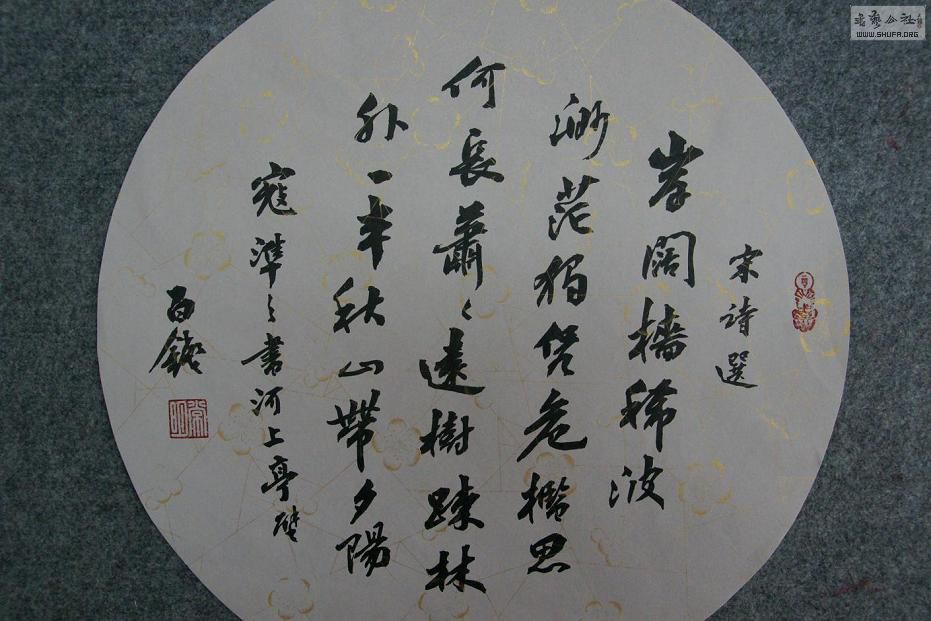 宋詩選
岸闊檣稀波
渺茫獨凭危檻思
何長蕭〻遠樹疎林
外一半秋山帶夕陽
寇準之書河上亭壁
書藝公社
WWW.SHUFA.ORG